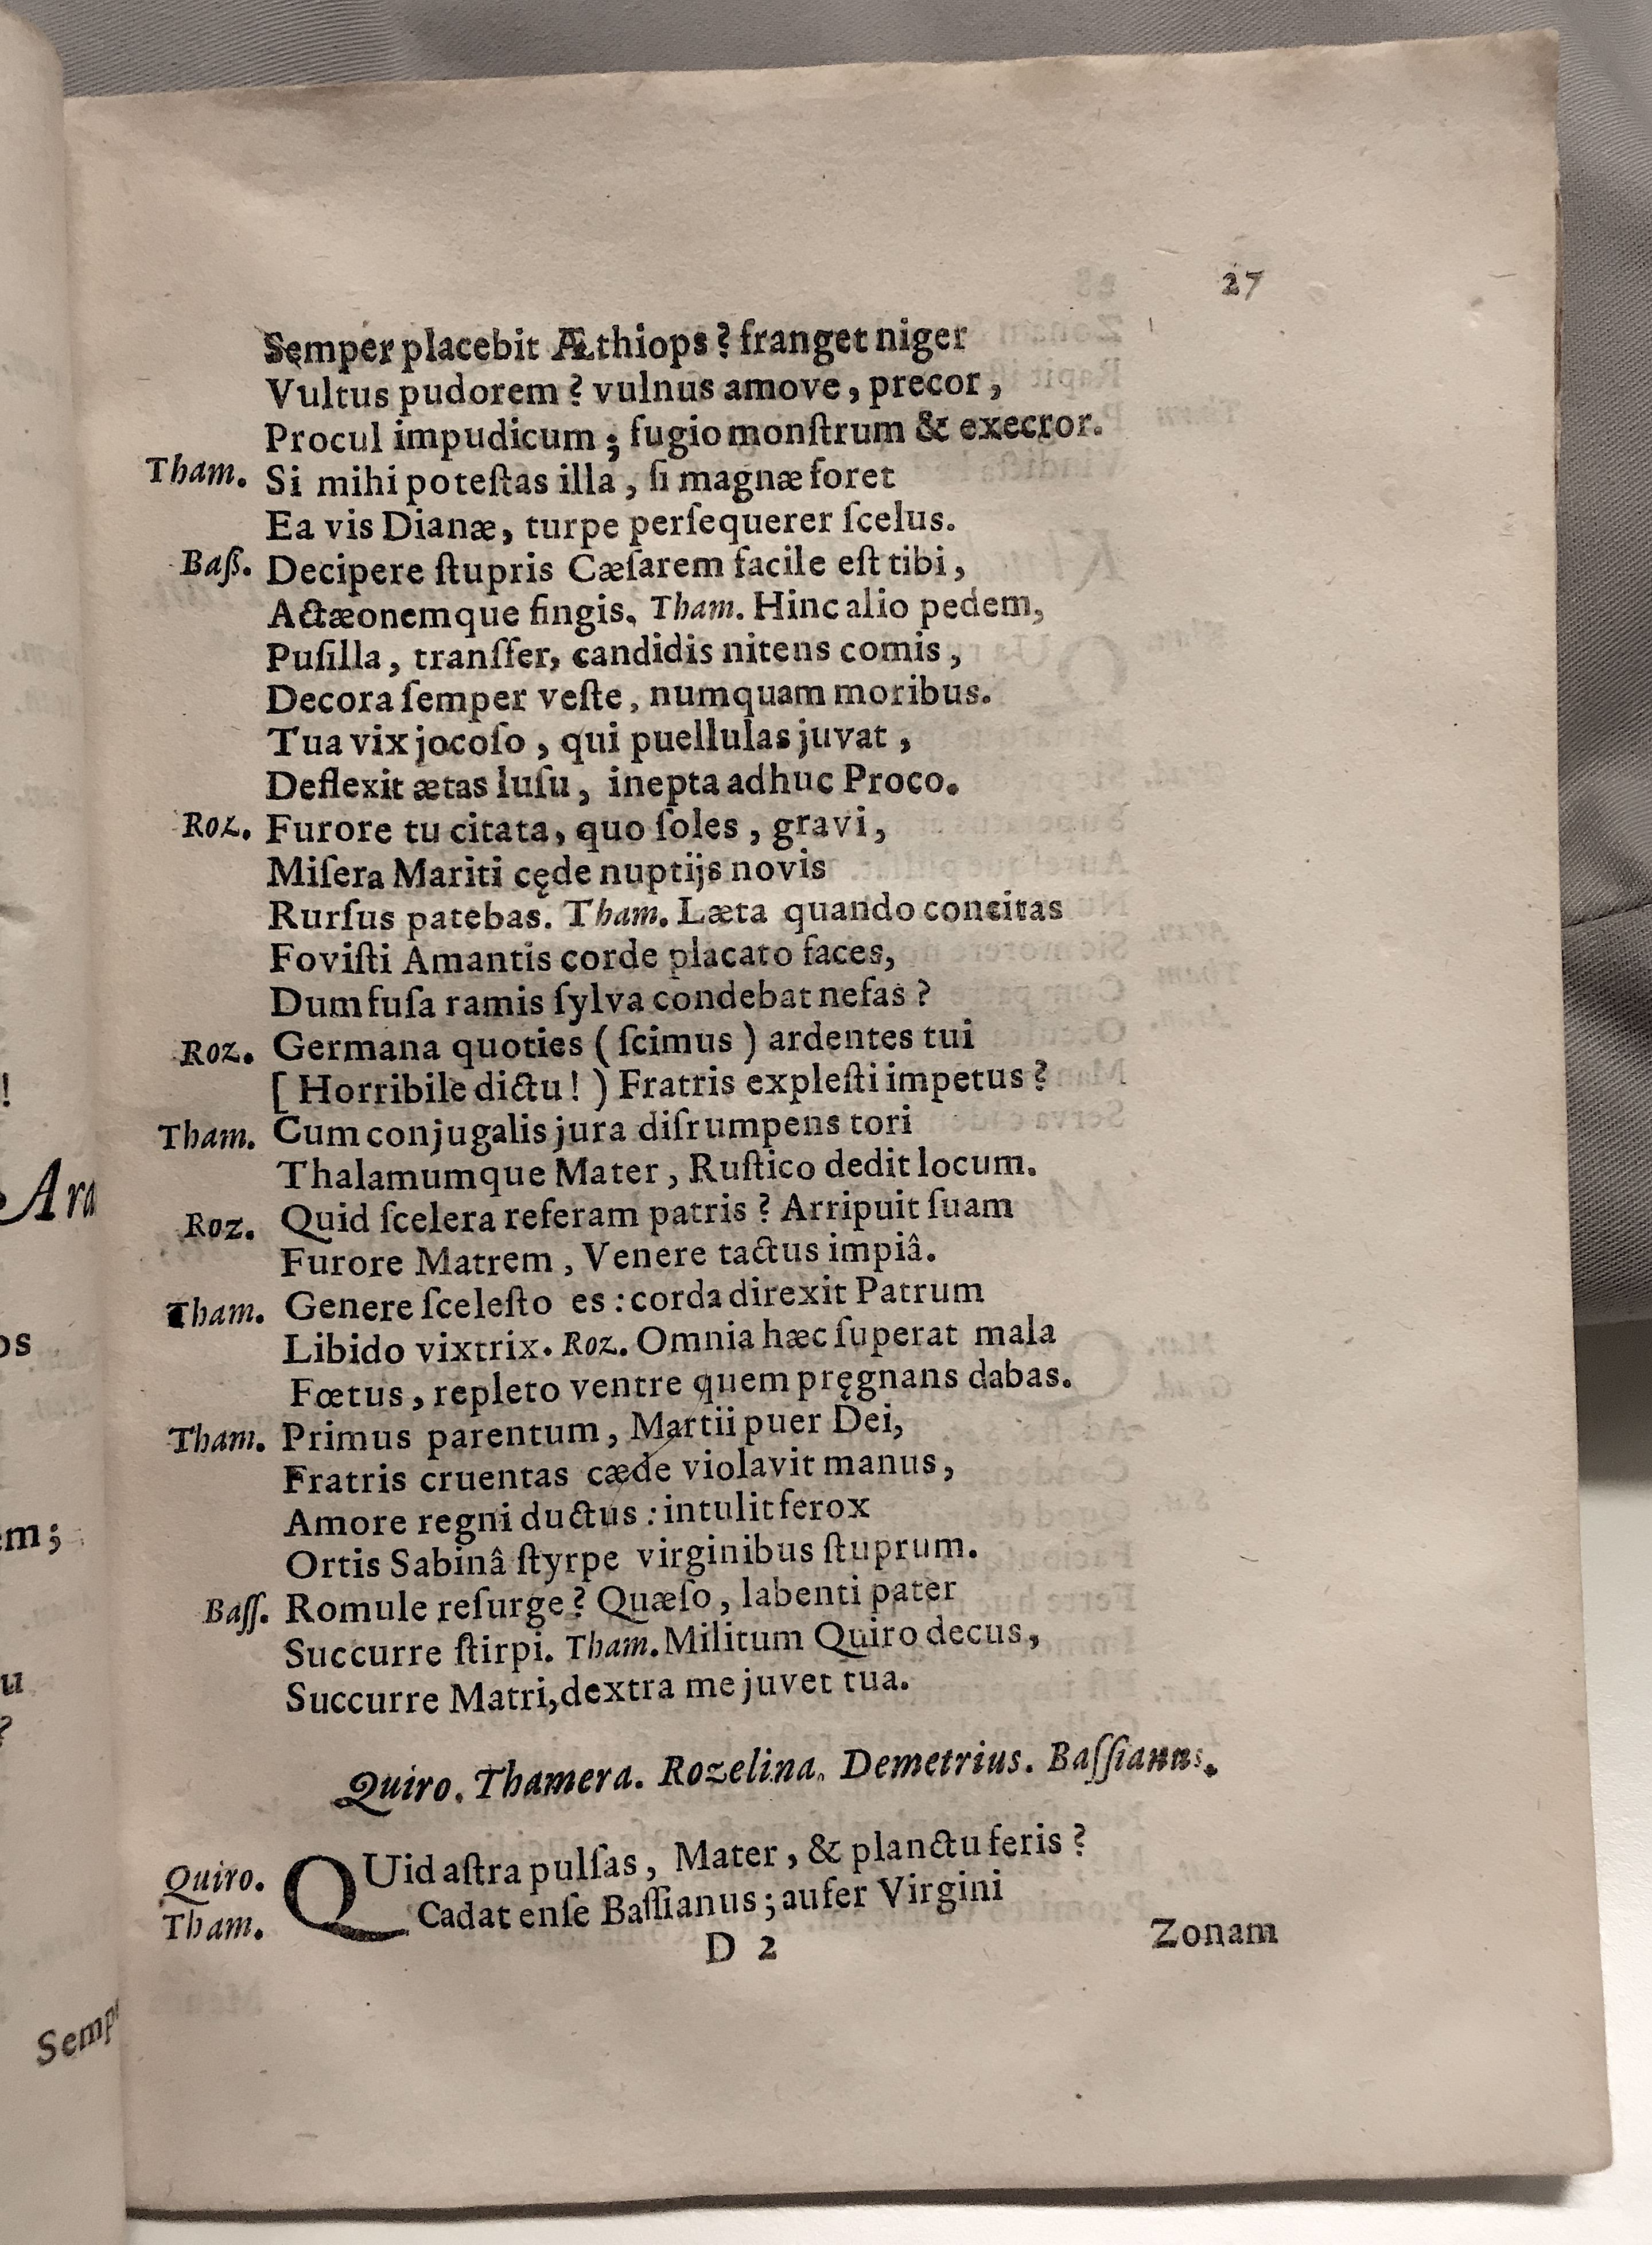 27
Semper placebit Æthiops? franget niger
Vultus pudorem? vulnus amove, precor,
Procul impudicum; fugio monſtrum & execror.
Tham. Si mihi poteſtas illa, ſi magnæ foret
Ea vis Dianæ, turpe perſequerer ſcelus.
Baſs. Decipere ſtupris Cæſarem facile eſt tibi,
Actæonemque fingis. Tham. Hinc alio pedem,
Puſilla, transfer, candidis nitens comis,
Decora ſemper veſte, numquam moribus.
Tua vix jocoſo, qui puellulas juvat,
Deflexit ætas luſu, inepta adhuc Proco.
Roz. Furore tu citata, quo ſoles, gravi,
Miſera Mariti cęde nuptijs novis
Rurſus patebas. Tham. Læta quando concitas
Foviſti Amantis corde placato faces,
Dum fuſa ramis ſylva condebat nefas?
Roz. Germana quoties (ſcimus) ardentes tui
[Horribile dictu!) Fratris expleſti impetus?
Tham. Cum conjugalis jura diſrumpens tori
Thalamumque Mater, Ruſtico dedit locum.
Roz. Quid ſcelera referam patris? Arripuit ſuam
Furore Matrem, Venere tactus impiâ.
Tham. Genere ſceleſto es: corda direxit Patrum
Libido vixtrix. Roz. Omnia hæc ſuperat mala
Fœtus, repleto ventre quem pręgnans dabas.
Tham. Primus parentum, Martii puer Dei,
Fratris cruentas cæde violavit manus,
Amore regni ductus: intulit ferox
Ortis Sabinâ ſtyrpe virginibus ſtuprum.
Baſſ. Romule reſurge? Quæſo, labenti pater
Succurre ſtirpi. Tham. Militum Quiro decus,
Succurre Matri, dextra me juvet tua.
Quiro. Thamera. Rozelina. Demetrius. Baſſianus.
Quiro. QUid aſtra pulſas, Mater, & planctu feris?
Tham. Cadat enſe Baſſianus; aufer Virgini
D 2
Zonam
!
Ara
os
em;
u
?
Semp